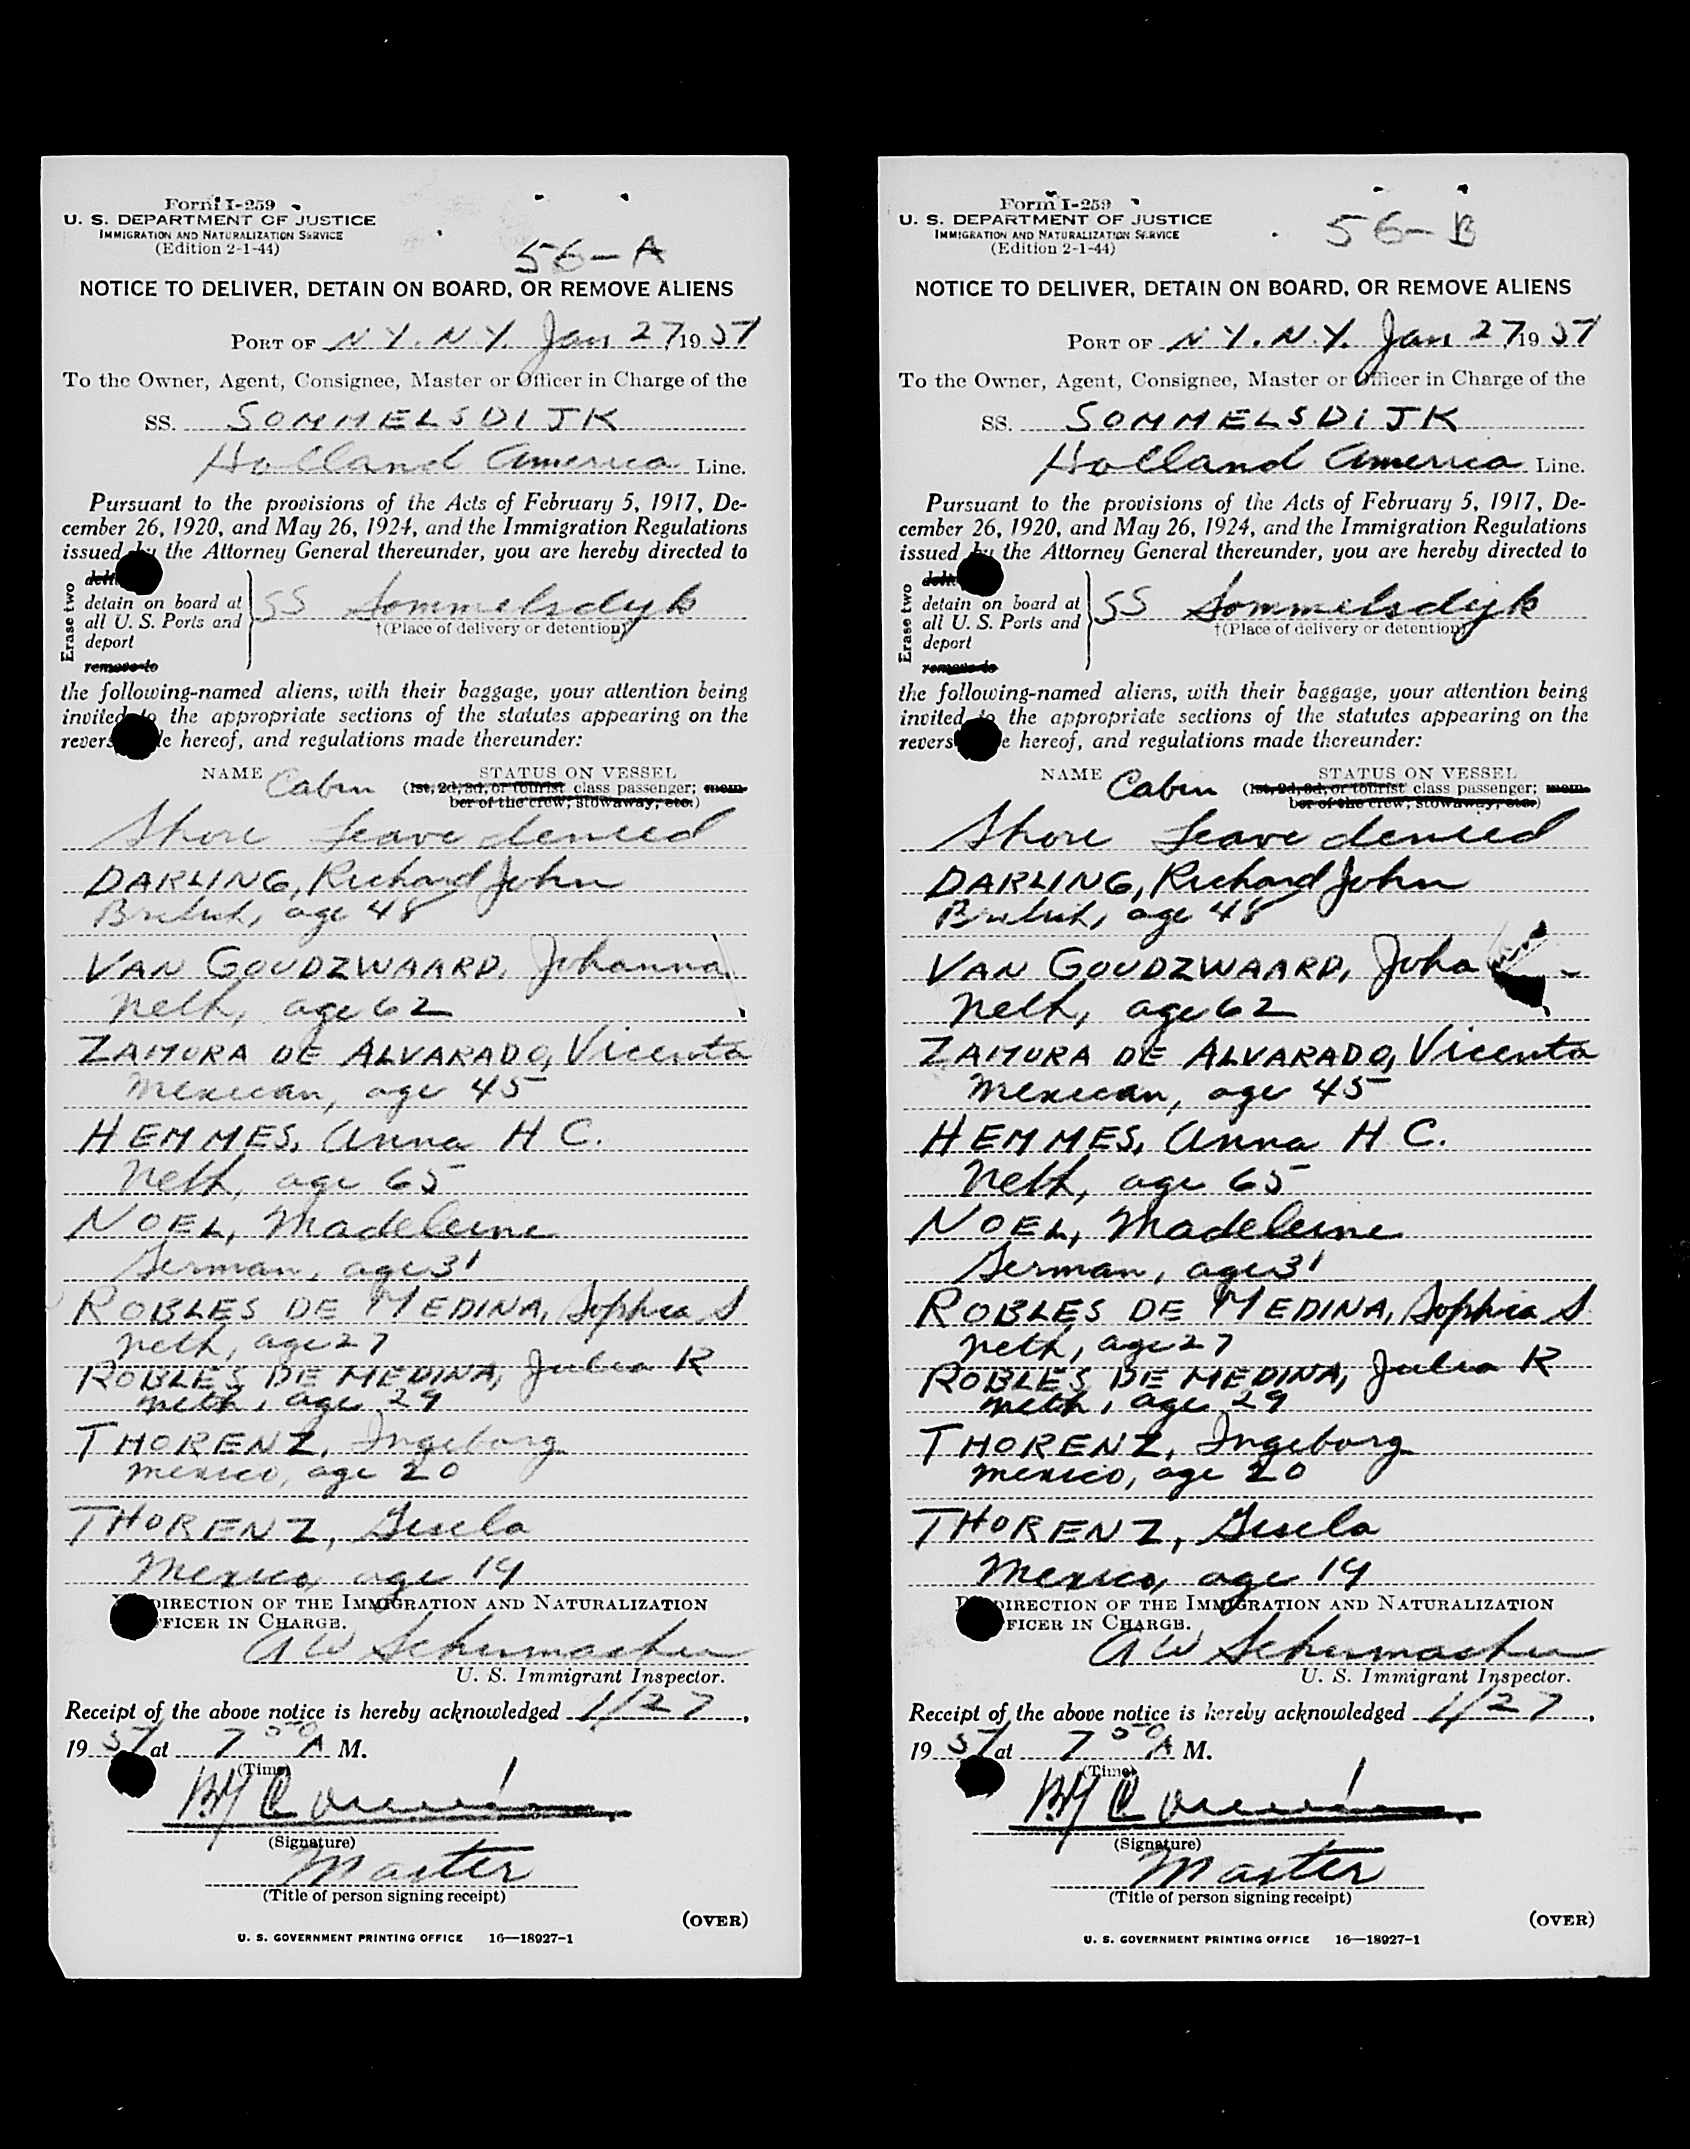 Form I-259
U. S. DEPARTMENT OF JUSTICE
IMMIGRATION AND NATURALIZATION SERVICE
(Edition 2-1-44)
56-A
NOTICE TO DELIVER, DETAIN ON BOARD, OR REMOVE ALIENS
PORT OF N.Y. N.Y. Jan 27, 1957
To the Owner, Agent, Consignee, Master or Officer in Charge of the
SS. SOMMELSDIJK
Holland America Line.
Pursuant to the provisions of the Acts of February 5, 1917, De-
cember 26, 1920, and May 26, 1924, and the Immigration Regulations
issued by the Attorney General thereunder, you are hereby directed to
Erase two
detain on board at
all U. S. Ports and
deport
remove to
SS Sommelsdyk
†(Place of delivery or detention)
the following-named aliens, with their baggage, your attention being
invited to the appropriate sections of the statutes appearing on the
hereof, and regulations made thereunder:
NAME Cabin STATUS ON VESSEL
(1st, 2d, 3d, or tourist class passenger; mem-
ber of the crew; stowaway, etc.)
Shore Leave denied
DARLING, Richard John
British, age 48
VAN GOUDZWAARD, Johanna
Neth, age 62
ZAMORA DE ALVARADO, Vicenta
Mexican, age 45
HEMMES, Anna H C.
Neth, age 65
NOEL, Madeleine
German, age 31
ROBLES DE MEDINA, Sophia S
Neth, age 27
ROBLES DE MEDINA, Julia R
Neth, age 29
THORENZ, Ingeborg
Mexico, age 20
THORENZ, Gisela
Mexico, age 19
DIRECTION OF THE IMMIGRATION AND NATURALIZATION
FFICER IN CHARGE.
A W Schumacher
U. S. Immigrant Inspector.
Receipt of the above notice is hereby acknowledged 1/27,
1957 at 7 50 A M.
(Time)
(Signature)
Master
(Title of person signing receipt)
(OVER)
U. S. GOVERNMENT PRINTING OFFICE 16—18927-1
Form I-259
U. S. DEPARTMENT OF JUSTICE
IMMIGRATION AND NATURALIZATION SERVICE
(Edition 2-1-44)
56-B
NOTICE TO DELIVER, DETAIN ON BOARD, OR REMOVE ALIENS
PORT OF N.Y. N.Y. Jan 27, 1957
To the Owner, Agent, Consignee, Master or Officer in Charge of the
SS. SOMMELSDIJK
Holland America Line.
Pursuant to the provisions of the Acts of February 5, 1917, De-
cember 26, 1920, and May 26, 1924, and the Immigration Regulations
issued by the Attorney General thereunder, you are hereby directed to
Erase two
detain on board at
all U. S. Ports and
deport
remove to
SS Sommelsdyk
†(Place of delivery or detention)
the following-named aliens, with their baggage, your attention being
invited to the appropriate sections of the statutes appearing on the
hereof, and regulations made thereunder:
NAME Cabin STATUS ON VESSEL
(1st, 2d, 3d, or tourist class passenger; mem-
ber of the crew; stowaway, etc.)
Shore Leave denied
DARLING, Richard John
British, age 48
VAN GOUDZWAARD, Joha
Neth, age 62
ZAMORA DE ALVARADO, Vicenta
Mexican, age 45
HEMMES, Anna H C.
Neth, age 65
NOEL, Madeleine
German, age 31
ROBLES DE MEDINA, Sophia S
Neth, age 27
ROBLES DE MEDINA, Julia R
Neth, age 29
THORENZ, Ingeborg
Mexico, age 20
THORENZ, Gisela
Mexico, age 19
DIRECTION OF THE IMMIGRATION AND NATURALIZATION
FFICER IN CHARGE.
A W Schumacher
U. S. Immigrant Inspector.
Receipt of the above notice is hereby acknowledged 1/27,
1957 at 7 50 A M.
(Time)
(Signature)
Master
(Title of person signing receipt)
(OVER)
U. S. GOVERNMENT PRINTING OFFICE 16—18927-1